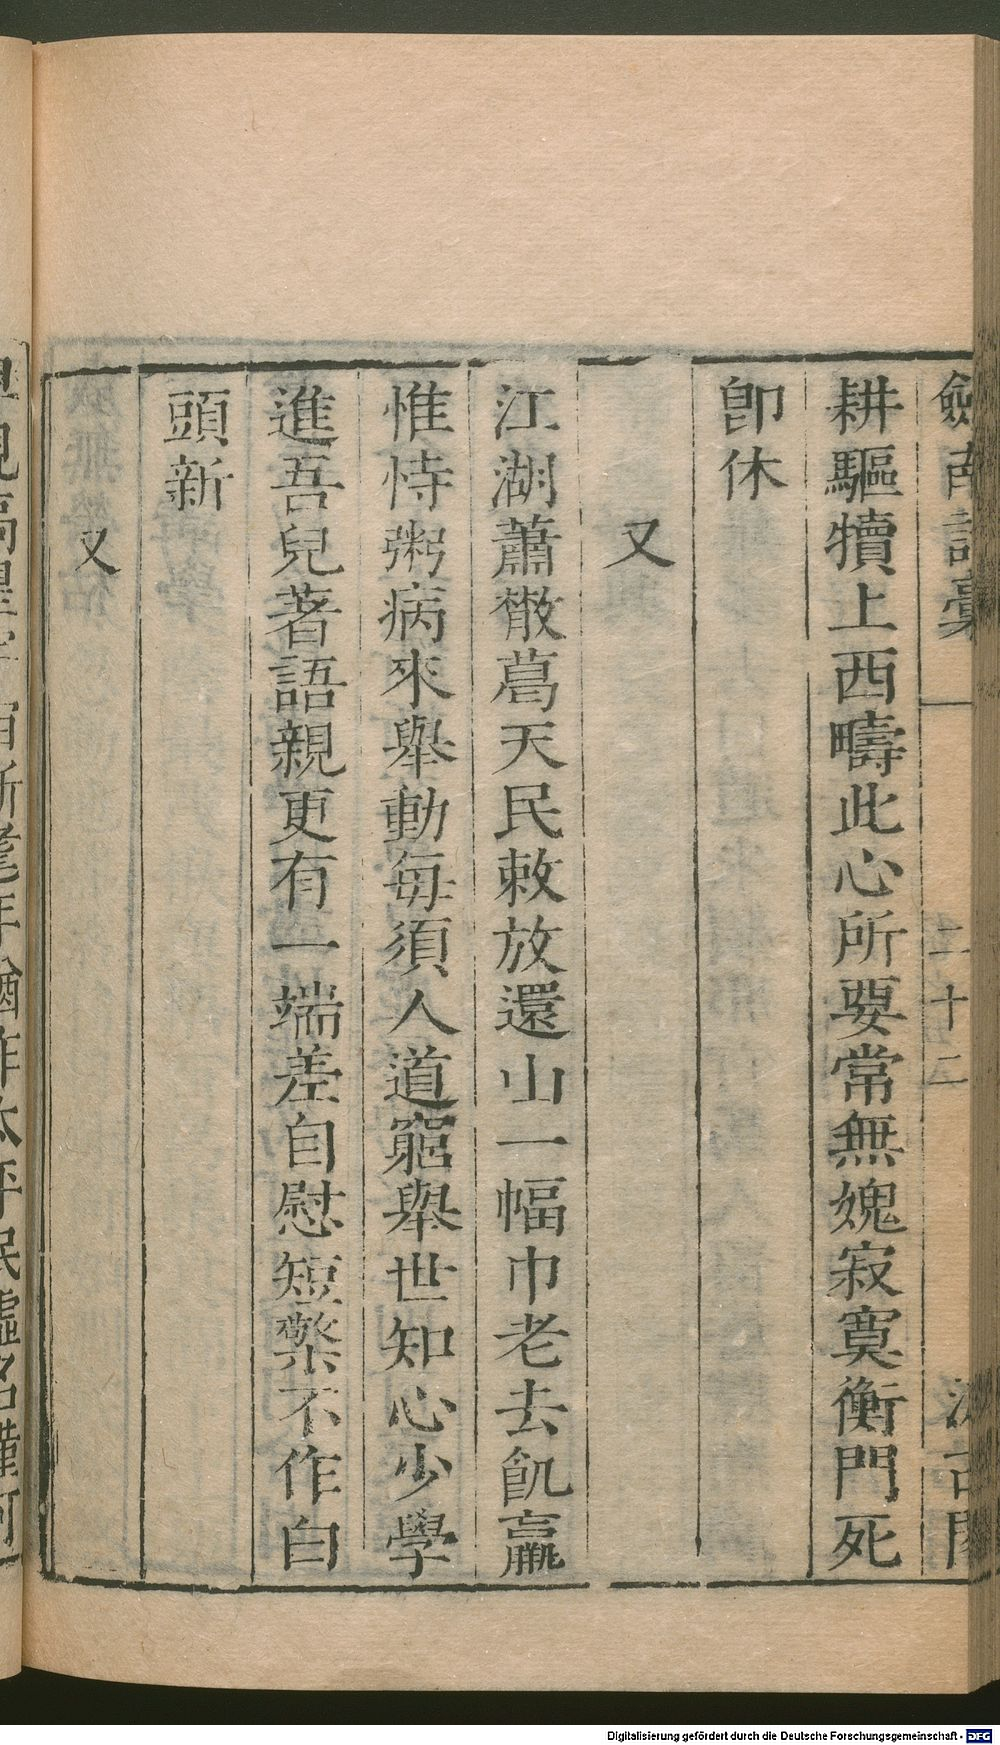 劍南詩稾
二十二
汲古閣
耕驅犢上西疇此心所要常無媿寂寞衡門死
卽休
又
江湖蕭散葛天民敕放還山一幅巾老去飢羸
惟恃粥病來舉動每須人道窮舉世知心少學
進吾兒著語親更有一端差自慰短檠不作白
頭新
又
Digitalisierung gefördert durch die Deutsche Forschungsgemeinschaft - DFG